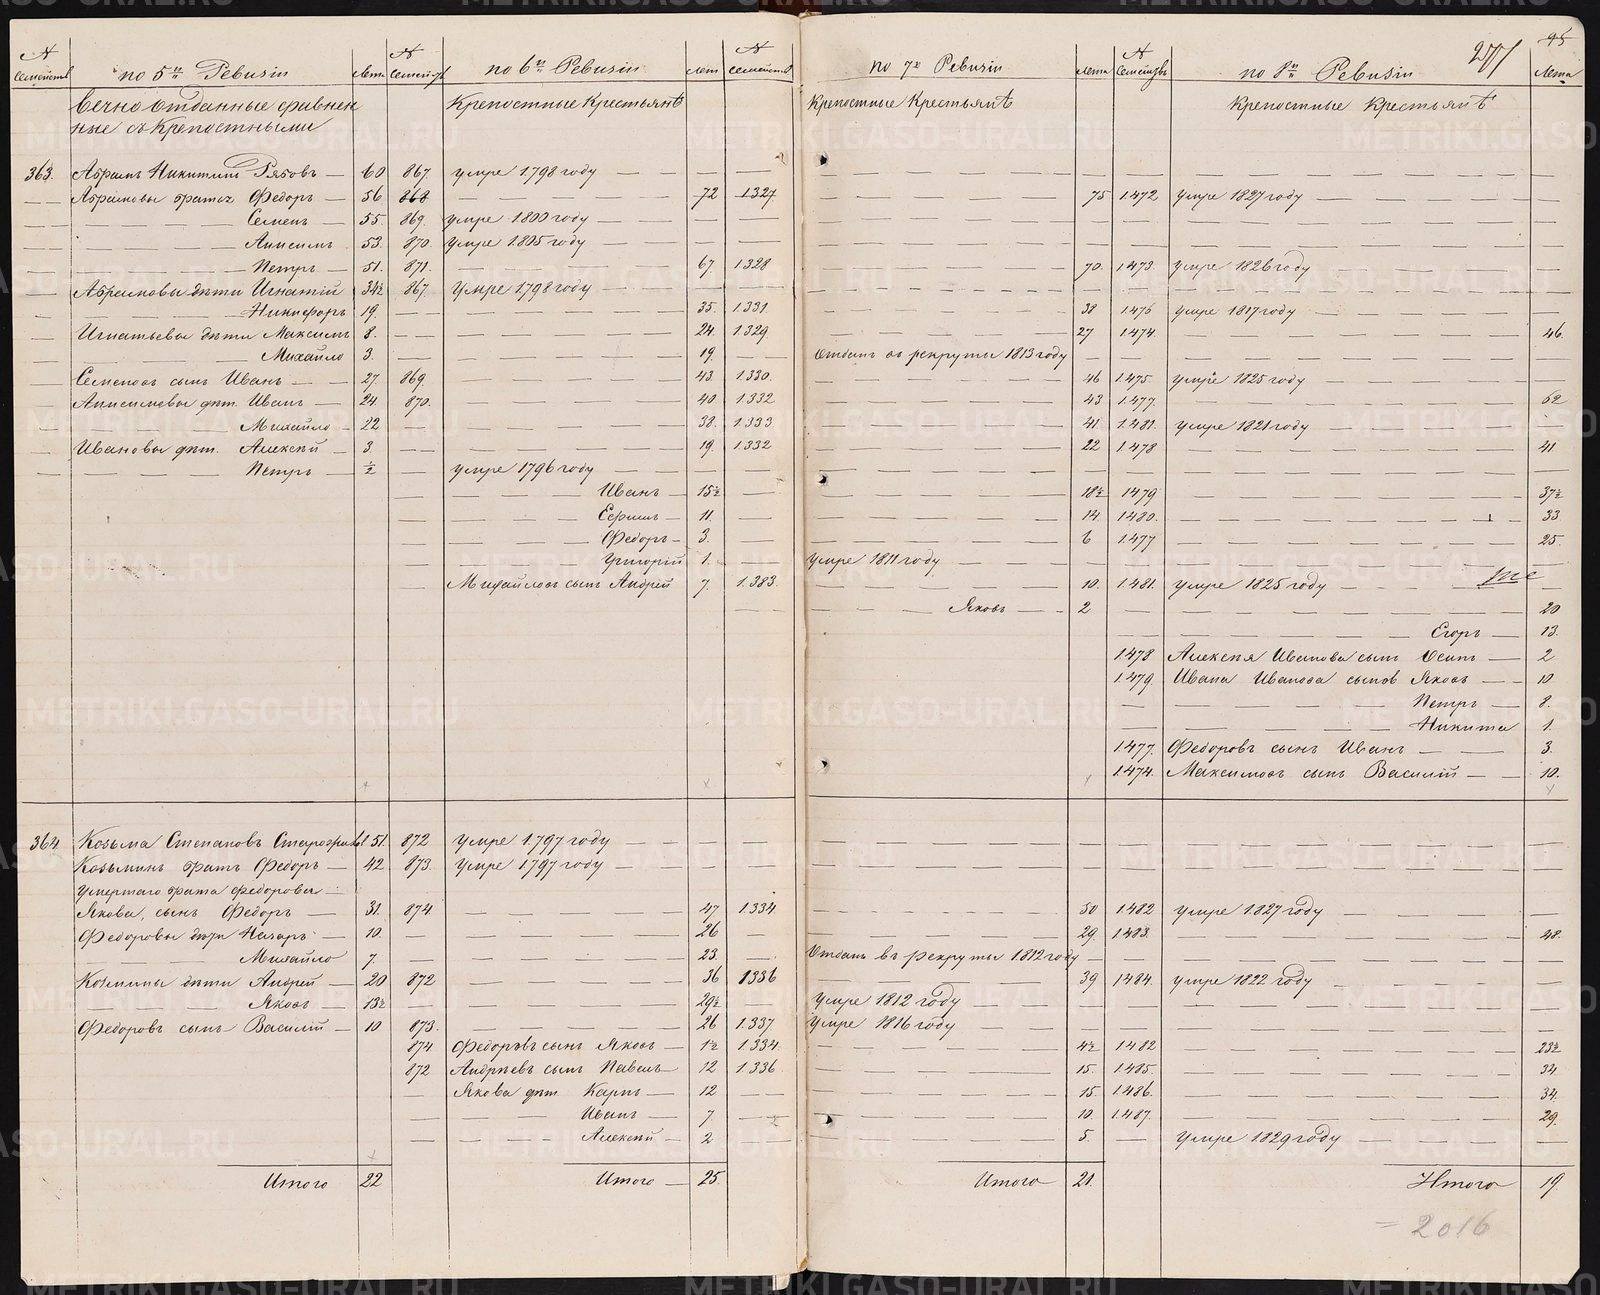 277
95
№ семействъ
по 5й Ревизіи
лета
№ семейства
по 6й Ревизіи
лет
№ семейства
по 7й Ревизіи
лета
№ семейства
по 8й Ревизіи
Лета
Вечно отданные сравнен
ные съ Крепостными
Крепостные Крестьянѣ
Крепостные Крестьянѣ
Крепостные Крестьянѣ
363. Абрамъ Никитинъ Рябовъ — 60 867. умре 1798 году
Абрамовы братья Федоръ — 56 868 — 72 1327. — 75 1472 умре 1827 году
Семенъ — 55. 869. умре 1800 году
Анисимъ 53. 870. умре 1805 году
Петръ — 51. 871. — 67. 1328 — 70. 1473. умре 1826 году
Абрамовы дѣти Игнатій 34½ 867. умре 1798 году
Никифоръ 19. — 35. 1331 — 38 1476 умре 1817 году
Игнатьевы дѣти Максимъ 8. — 24. 1329. — 27 1474. — 46.
Михайло 3. — 19. — Отданъ въ рекруты 1813 году
Семеновъ сынъ Иванъ — 27. 869. — 43. 1330. — 46 1475. умре 1825 году
Анисимовы дѣт. Иванъ — 24. 870. — 40 1332 — 43 1477. — 62
Михайло — 22 — 38. 1333 — 41 1481. умре 1821 году
Ивановы дѣт. Алексѣй — 3. — 19. 1332 — 22 1478 — 41
Петръ — ½ — умре 1796 году
Иванъ — 15½ — 18½ 1479 — 37½
Ефимъ — 11. — 14. 1480. — 33
Федоръ — 3. — 6 1477 — 25.
Григорій 1. — умре 1811 году
Михайловъ сынъ Андрей 7. 1383. — 10. 1481. умре 1825 году
Яковъ — 2 — 20
Егоръ — 13.
1478 Алексѣя Иванова сынъ Осипъ — 2
1479. Ивана Иванова сынов Яковъ — 10
Петръ — 8.
Никита 1.
1477. Федоровъ сынъ Иванъ — 3.
1474. Максимовъ сынъ Василій — 10.
364 Козьма Степановъ 51. 872 умре 1797 году
Козьминъ братъ Федоръ — 42 873. умре 1797 году
Умершаго брата Федорова
Якова, сынъ Федоръ — 31. 874. — 47 1334 — 50 1482 умре 1827 году
Федоровы дѣти Назаръ — 10. — 26 — 29 1483. — 48.
Михайло 7. — 23. — Отданъ въ рекруты 1812 году
Козмины дѣти Андрей — 20 872 — 36 1336 — 39 1484. умре 1822 году
Яковъ — 13½ — 29½ — умре 1812 году
Федоровъ сынъ Василій — 10 873. — 26 1337. умре 1816 году
874 Федоровъ сынъ Яковъ — 1½ 1334. — 4½ 1482 — 23½
872 Андрѣевъ сынъ Павелъ — 12 1336 — 15. 1485. — 34.
Якова дѣт. Карпъ — 12 — 15. 1486. — 34.
Иванъ — 7 — 10. 1487. — 29.
Алексѣй — 2 — 5. — умре 1829 году
Итого 22
Итого — 25.
Итого 21.
Итого 19
= 2016
METRIKI.GASO-URAL.RU